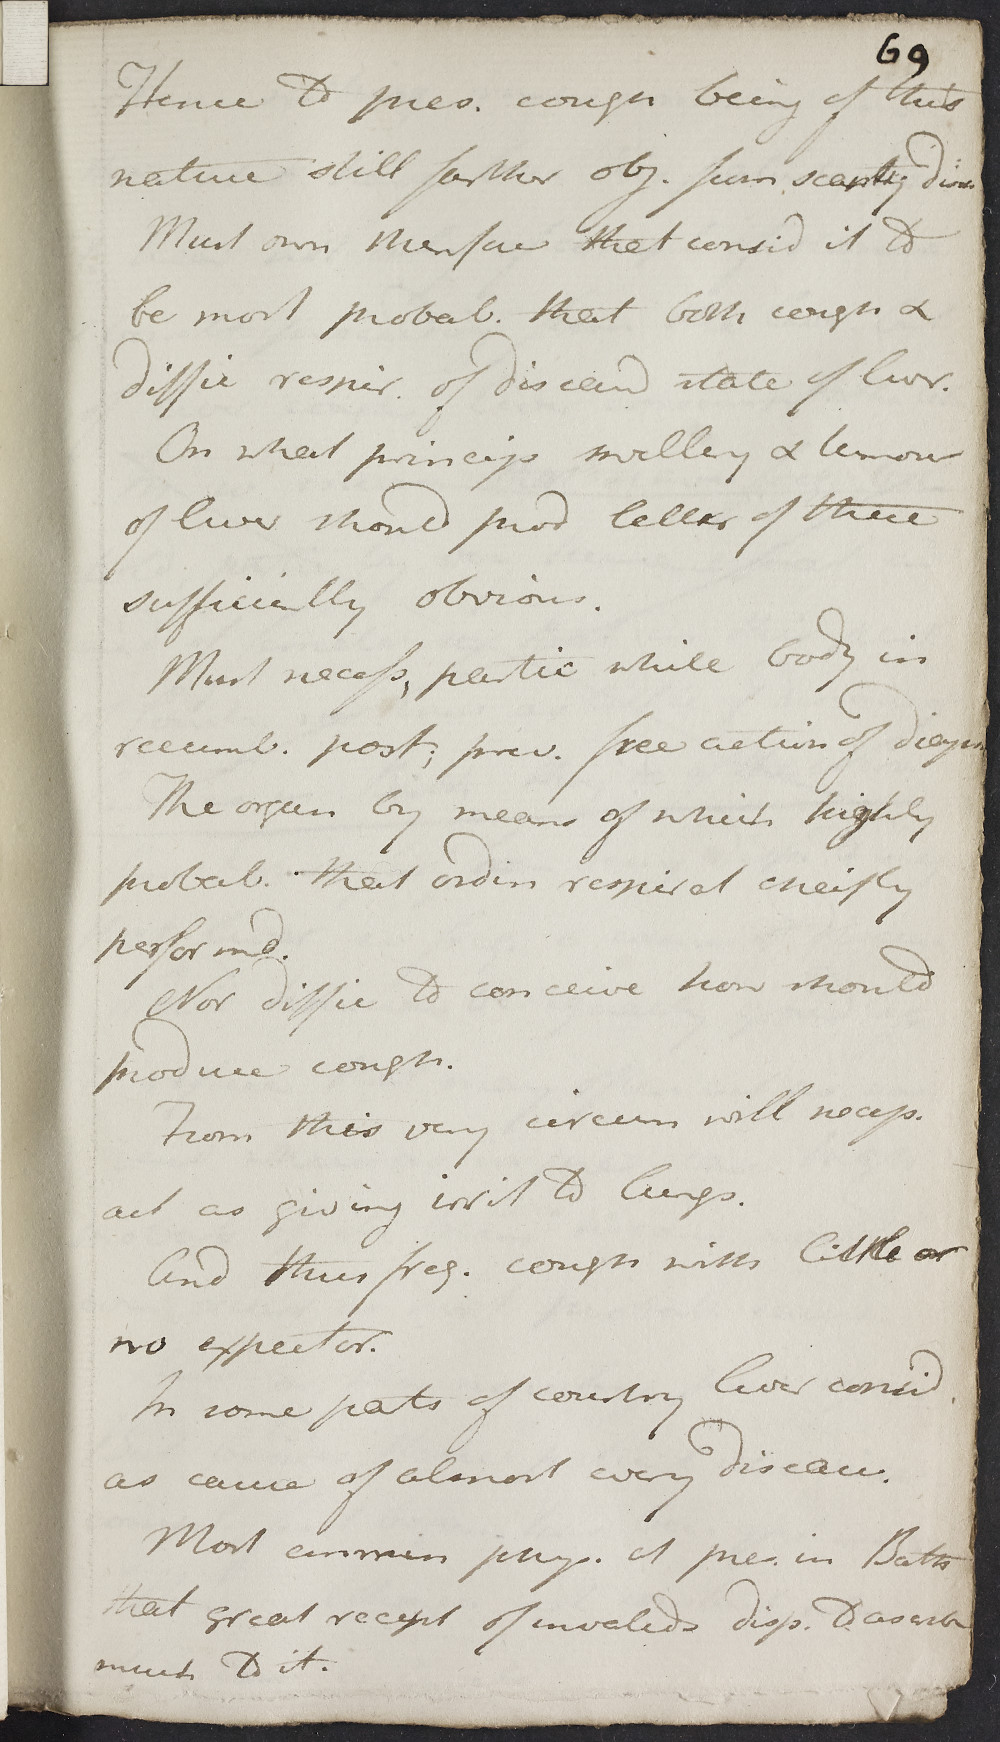 69
Hence to pres. cough being of this
nature still farther obj. from scanty
Must own therefore that consid it to
be most probab. that both cough &
diffic respir. of diseased state of liver.
On what princip swelling & tumour
of liver should prod latter of these
sufficiently obvious.
Must necess, partic while body in
recumb. post; prev. free action of diaph
The organ by means of which highly
probab. that ordin respirat cheifly
performd.
Nor diffic to conceive how should
produce cough.
From this very circum will necess.
act as giving irrit to lungs.
And thus freq. cough with little or
no expector.
In some parts of country liver consid.
as cause of almost every disease.
Most eminen phys. at pres. in Bath
that great recept of invalids disp. to ascribe
much to it.